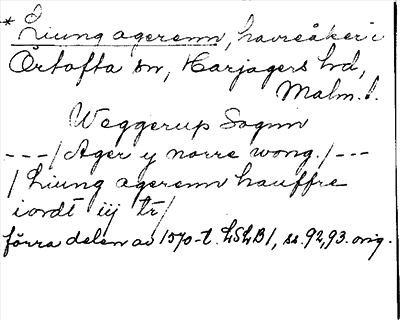 * Liung agerenn, havreåker i
Örtofta sn, Harjagers hd,
Malm. l.
Weggerup Sognn
---/Ager y norre wong./---
/Liung agerenn hauffre
iordt iij tr/
förra delen av 1570-t. LSLB1, ss. 92, 93. orig.